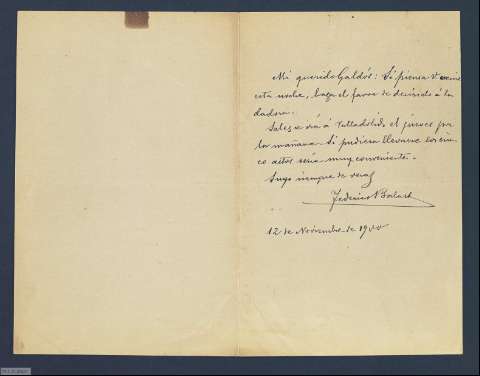 Mi querido Galdós: Si piensa V. venir
esta noche, haga el favor de decírselo á la
dadora.
Salgo á Valladolid el jueves por
la mañana. Si pudiera llevarme los cin-
co actos sería muy conveniente.
Suyo siempre de veras
Federico Balart
12 de Noviembre de 1900